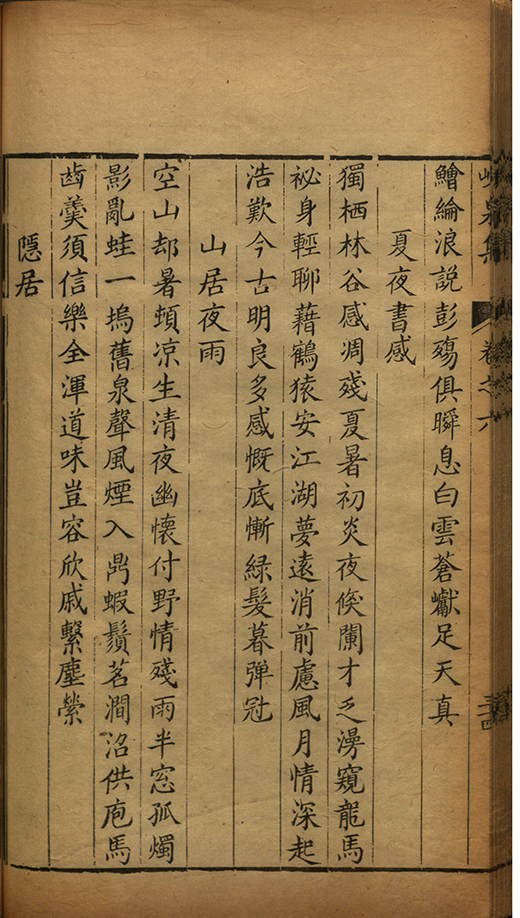 峴泉集 卷之六
鱠綸浪說彭殤俱瞬息白雲蒼巘足天真
夏夜書感
獨栖林谷感凋殘夏暑初炎夜倐闌才乏謾窺龍馬
祕身輕聊藉鶴猿安江湖夢遠消前慮風月情深起
浩歎今古明良多感慨底慚綠髪暮弹冠
山居夜雨
空山却暑頓凉生清夜幽懷付野情殘雨半窓孤燭
影亂蛙一塢舊泉聲風煙入鼎蝦鬚茗澗沼供庖馬
齒羮須信樂全渾道味豈容欣戚繫塵縈
隱居